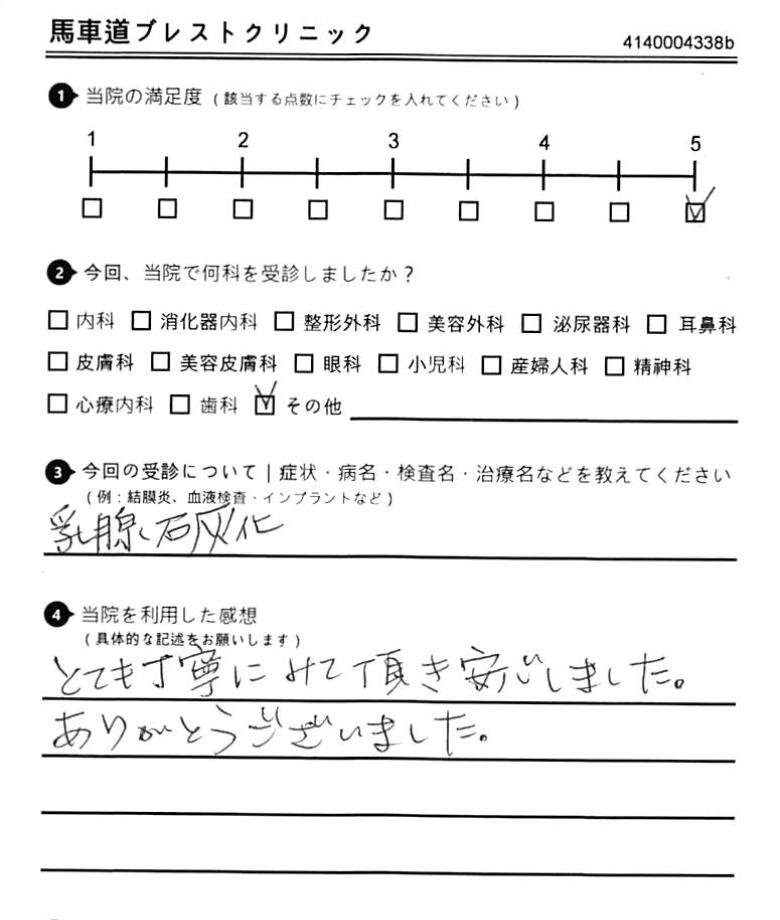 馬車道ブレストクリニック
4140004338b
1 当院の満足度 (該当する点数にチェックを入れてください)
1 2 3 4 5
2 今回、当院で何科を受診しましたか?
内科 消化器内科 整形外科 美容外科 泌尿器科 耳鼻科
皮膚科 美容皮膚科 眼科 小児科 産婦人科 精神科
心療内科 歯科 その他
3 今回の受診について|症状・病名・検査名・治療名などを教えてください
(例:結膜炎、血液検査・インプラントなど)
乳腺、石灰化
4 当院を利用した感想
(具体的な記述をお願いします)
とても丁寧にみて頂き安心しました。
ありがとうございました。